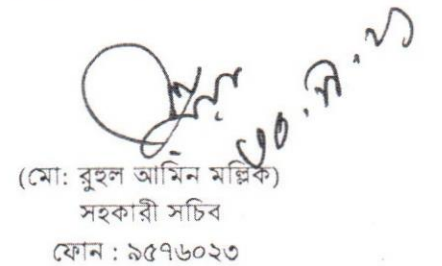 (মো: রুহুল আমিন মল্লিক)
সহকারী সচিব
ফোন : ৯৫৭৬০২৩